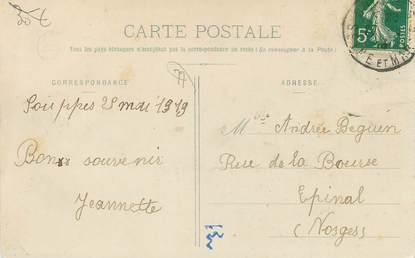 CARTE POSTALE
Tous les pays étrangers n'acceptent pas la correspondance au recto (Se renseigner à la Poste)
CORRESPONDANCE
ADRESSE
Souppes 25 mai 1919
Bons souvenir
Jeannette
Mlle Andrée Beguin
Rue de la Bourse
Epinal
(Vosges)
5c
POSTES
ET M